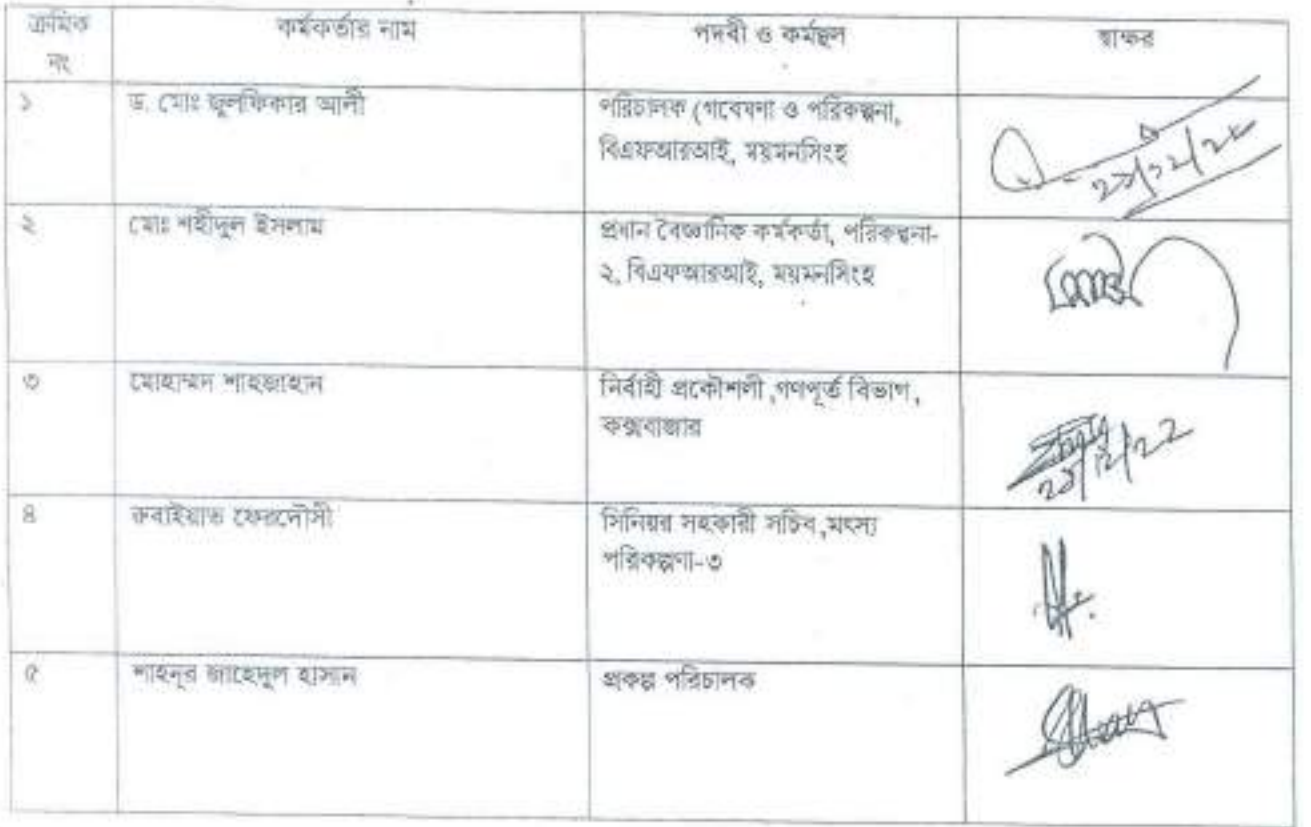 ক্রমিক নং কর্মকর্তার নাম পদবী ও কর্মস্থল স্বাক্ষর
১ ড. মোঃ জুলফিকার আলী পরিচালক (গবেষণা ও পরিকল্পনা,
বিএফআরআই, ময়মনসিংহ
২ মোঃ শহীদুল ইসলাম প্রধান বৈজ্ঞানিক কর্মকর্তা, পরিকল্পনা-
২, বিএফআরআই, ময়মনসিংহ
৩ মোহাম্মদ শাহজাহান নির্বাহী প্রকৌশলী ,গণপূর্ত বিভাগ,
কক্সবাজার
৪ রুবাইয়াত ফেরদৌসী সিনিয়র সহকারী সচিব ,মৎস্য
পরিকল্পণা-৩
৫ শাহনূর জাহেদুল হাসান প্রকল্প পরিচালক